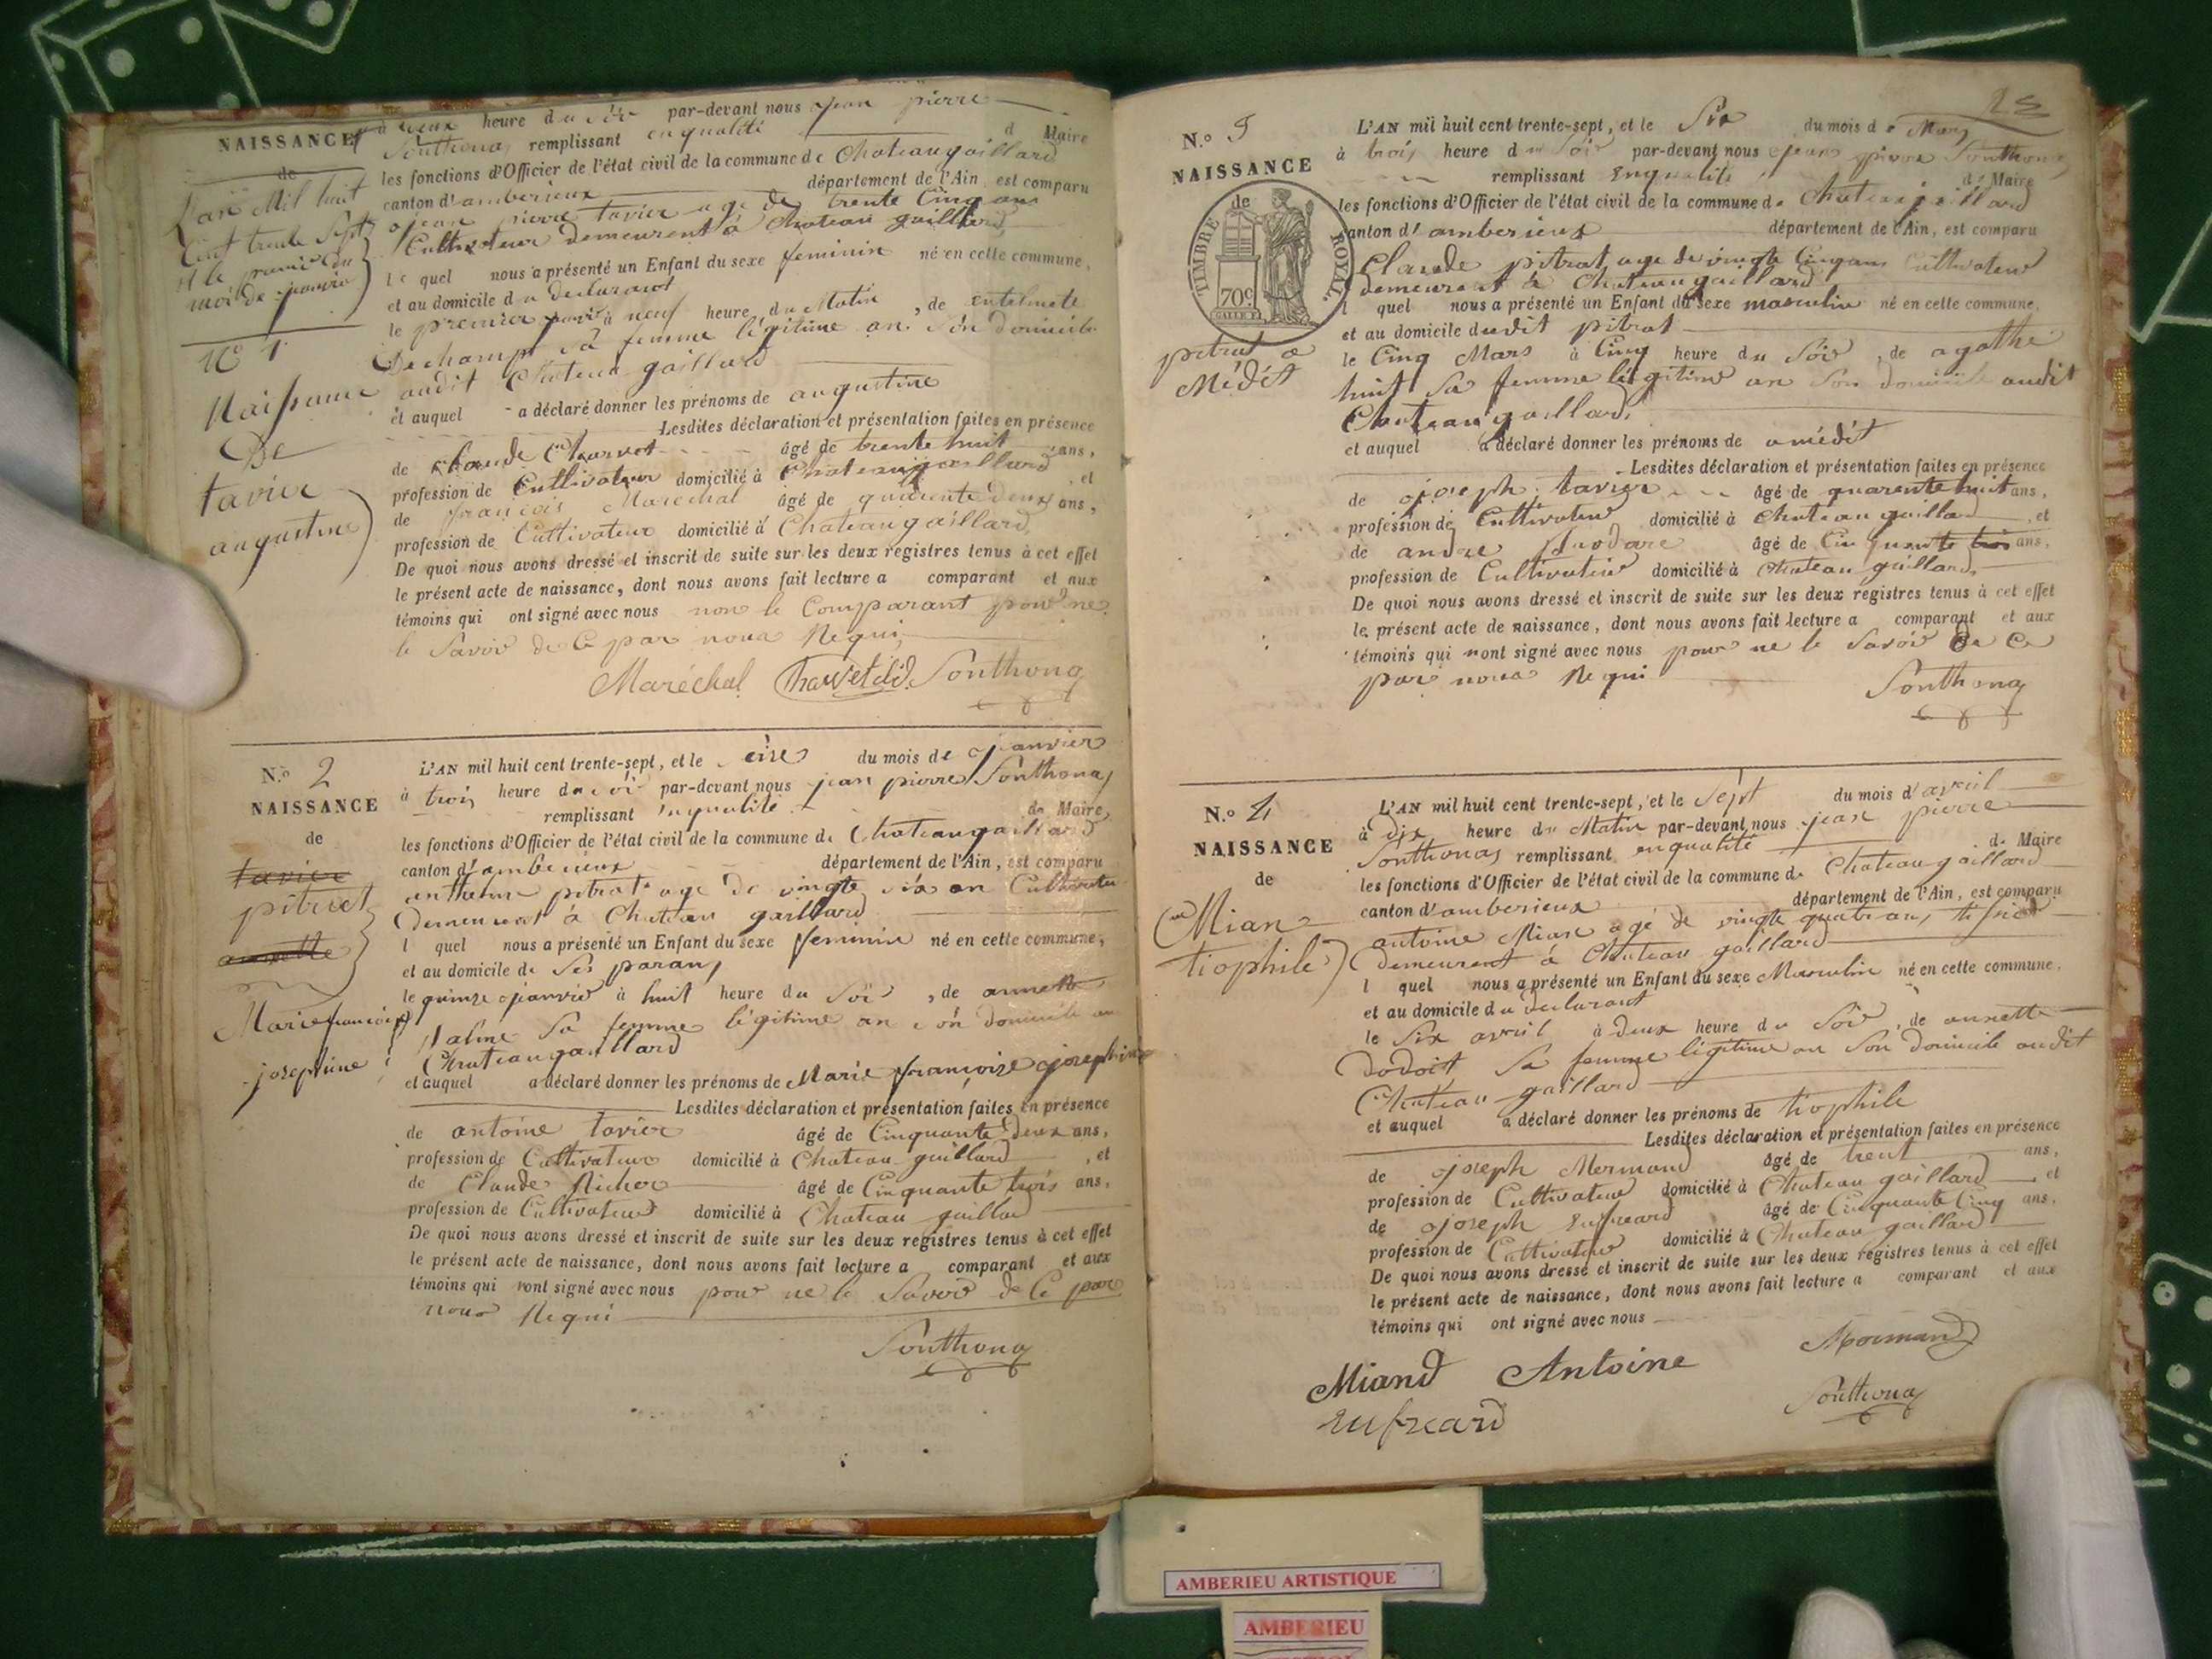 NAISSANCE
de
L'an Mil huit
Cent trente Sept
et le premier du
mois de janvier
N° 1
Naissance
De
tavier
augustine
à deux heure du soir par-devant nous jean pierre
Sonthonas remplissant enqualité d Maire
les fonctions d'Officier de l'état civil de la commune de Chateaugaillard
canton d'amberieux département de l'Ain, est comparu
jean pierre tavier age de trente Cinq ans
Cultivateur demeurent à Chateau gaillard
le quel nous a présenté un Enfant du sexe feminin né en cette commune,
et au domicile du declarant
le premier janvier à neuf heure du Matin, de
Dechamp sa femme légitime an son domicile
audit Chateau gaillard
et auquel a déclaré donner les prénoms de augustine
Lesdites déclaration et présentation faites en présence
de Claude Charvet âgé de trente huit ans,
profession de Cultivateur domicilié à Chateaugaillard, et
de françois Marechal âgé de quarente deux ans,
profession de Cultivateur domicilié à Chateaugaillard,
De quoi nous avons dressé et inscrit de suite sur les deux registres tenus à cet effet
le présent acte de naissance, dont nous avons fait lecture a comparant et aux
témoins qui ont signé avec nous non le Comparant pour ne
le Savoir de Ce par nous Requi
Maréchal Charvet Sonthonas
N.° 2
NAISSANCE
de
tavier
pitrat
annette
Marie françoise
josephine
L'AN mil huit cent trente-sept, et le seize du mois de janvier
à trois heure du soir par-devant nous jean pierre Sonthonas
remplissant enqualité de Maire
les fonctions d'Officier de l'état civil de la commune de Chateaugaillard
canton d'amberieux département de l'Ain, est comparu
anthelme pitrat age de vingte six an Cultivateur
Demeurent à Chateau gaillard
l quel nous a présenté un Enfant du sexe feminin né en cette commune,
et au domicile de Ses parans
le quinze janvier à huit heure du Soir, de annette
sa femme légitime an son domicile au
Chateaugaillard
et auquel a déclaré donner les prénoms de Marie françoise josephine
Lesdites déclaration et présentation faites en présence
de antoine tavier âgé de Cinquante deux ans,
profession de Cultivateur domicilié à Chateau gaillard, et
de Claude Richer âgé de Cinquante trois ans,
profession de Cultivateur domicilié à Chateau gaillard
De quoi nous avons dressé et inscrit de suite sur les deux registres tenus à cet effet
le présent acte de naissance, dont nous avons fait lecture a comparant et aux
témoins qui nont signé avec nous pour ne le Savoir de Ce par
nous Requi
Sonthonas
N.° 3
NAISSANCE
de
TIMBRE ROYAL
70c
pitrat a
Médét
L'AN mil huit cent trente-sept, et le Six du mois de Mars
à trois heure du Soir par-devant nous jean pierre Sonthonas
remplissant Enqualité de Maire
les fonctions d'Officier de l'état civil de la commune de Chateaugaillard
canton d'amberieux département de l'Ain, est comparu
Claude pitrat age de vingte Cinq ans Cultivateur
demeurent à Chateaugaillard
l quel nous a présenté un Enfant du sexe masculin né en cette commune,
et au domicile dudit pitrat
le Cinq Mars à Cinq heure du Soir, de agathe
huit Sa femme légitime an Son domicile audit
Chateaugaillard,
et auquel a déclaré donner les prénoms de amédét
Lesdites déclaration et présentation faites en présence
de joseph tavier âgé de quarente huit ans,
profession de Cultivateur domicilié à Chateau gaillard, et
de andré âgé de Cinquante trois ans,
profession de Cultivateur domicilié à Chateau gaillard,
De quoi nous avons dressé et inscrit de suite sur les deux registres tenus à cet effet
le présent acte de naissance, dont nous avons fait lecture a comparant et aux
témoins qui nont signé avec nous pour ne le Savoir de Ce
par nous Requi
Sonthonas
N.° 4
NAISSANCE
de
Mian
tiophile
L'AN mil huit cent trente-sept, et le Sept du mois d'avril
à Dix heure du Matin par-devant nous jean pierre
Sonthonas remplissant enqualité de Maire
les fonctions d'Officier de l'état civil de la commune de Chateaugaillard
canton d'amberieux département de l'Ain, est comparu
antoine Mian agé de vingte quatre ans, tissier
Demeurent à Chateau gaillard
l quel nous a présenté un Enfant du sexe Masculin né en cette commune,
et au domicile du declarant
le Six avril à deux heure du Soir, de annette
Dodoit Sa femme légitime an Son domicile audit
Chateau gaillard
et auquel a déclaré donner les prénoms de tiophile
Lesdites déclaration et présentation faites en présence
de joseph Mermand âgé de trent ans,
profession de Cultivateur domicilié à Chateau gaillard, et
de joseph Eufreard âgé de Cinquante Cinq ans,
profession de Cultivateur domicilié à Chateau gaillard
De quoi nous avons dressé et inscrit de suite sur les deux registres tenus à cet effet
le présent acte de naissance, dont nous avons fait lecture a comparant et aux
témoins qui ont signé avec nous
Miand Antoine Mormand
Eufreard Sonthonas
AMBERIEU ARTISTIQUE
AMBERIEU